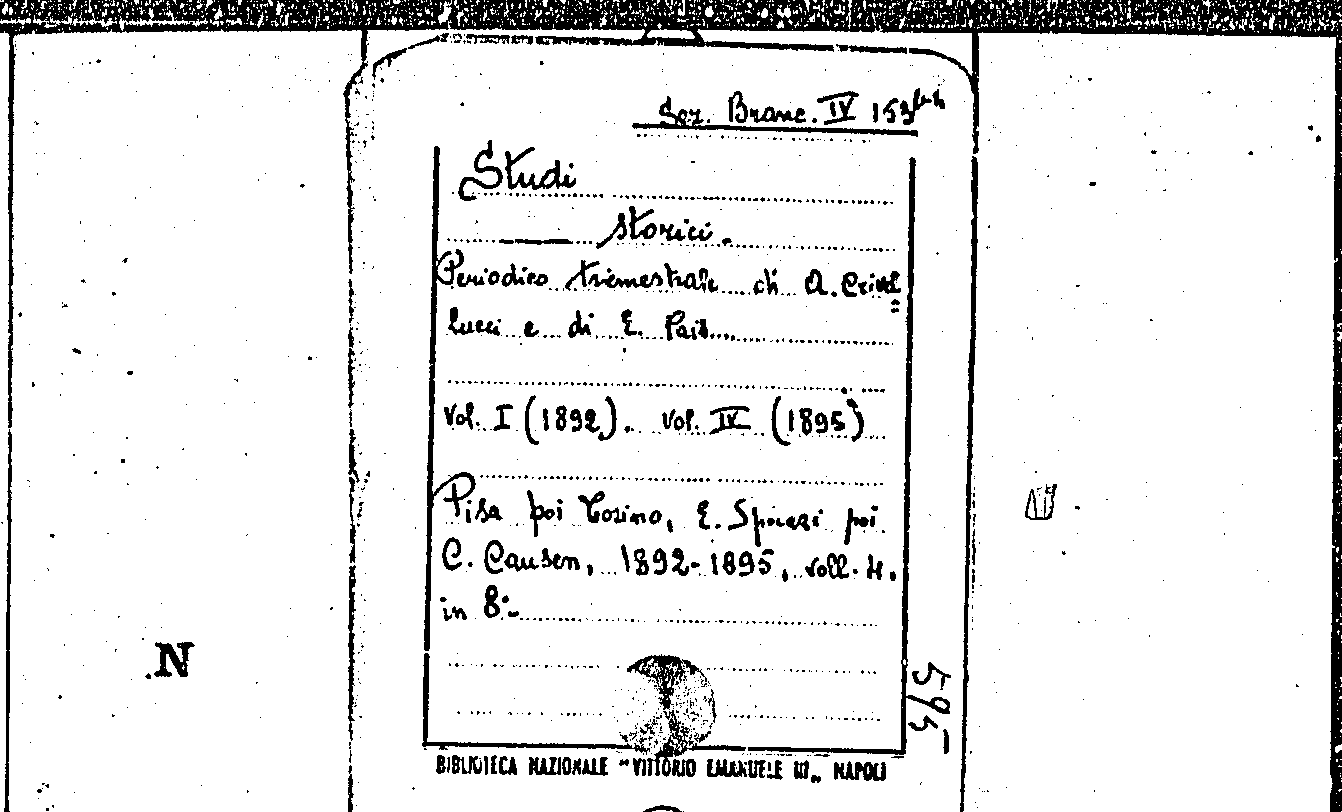 Sez. Branc. IV 153
Studi
storici.
Periodico trimestrale di A. Crivel=
lucci e di E. Pais
Vol. I (1892). Vol. IV (1895)
Pisa poi Torino, E. Spoerri poi
C. Causen, 1892-1895, voll. 4.
in 8°
595
N
BIBLIOTECA NAZIONALE "VITTORIO EMANUELE III„ NAPOLI